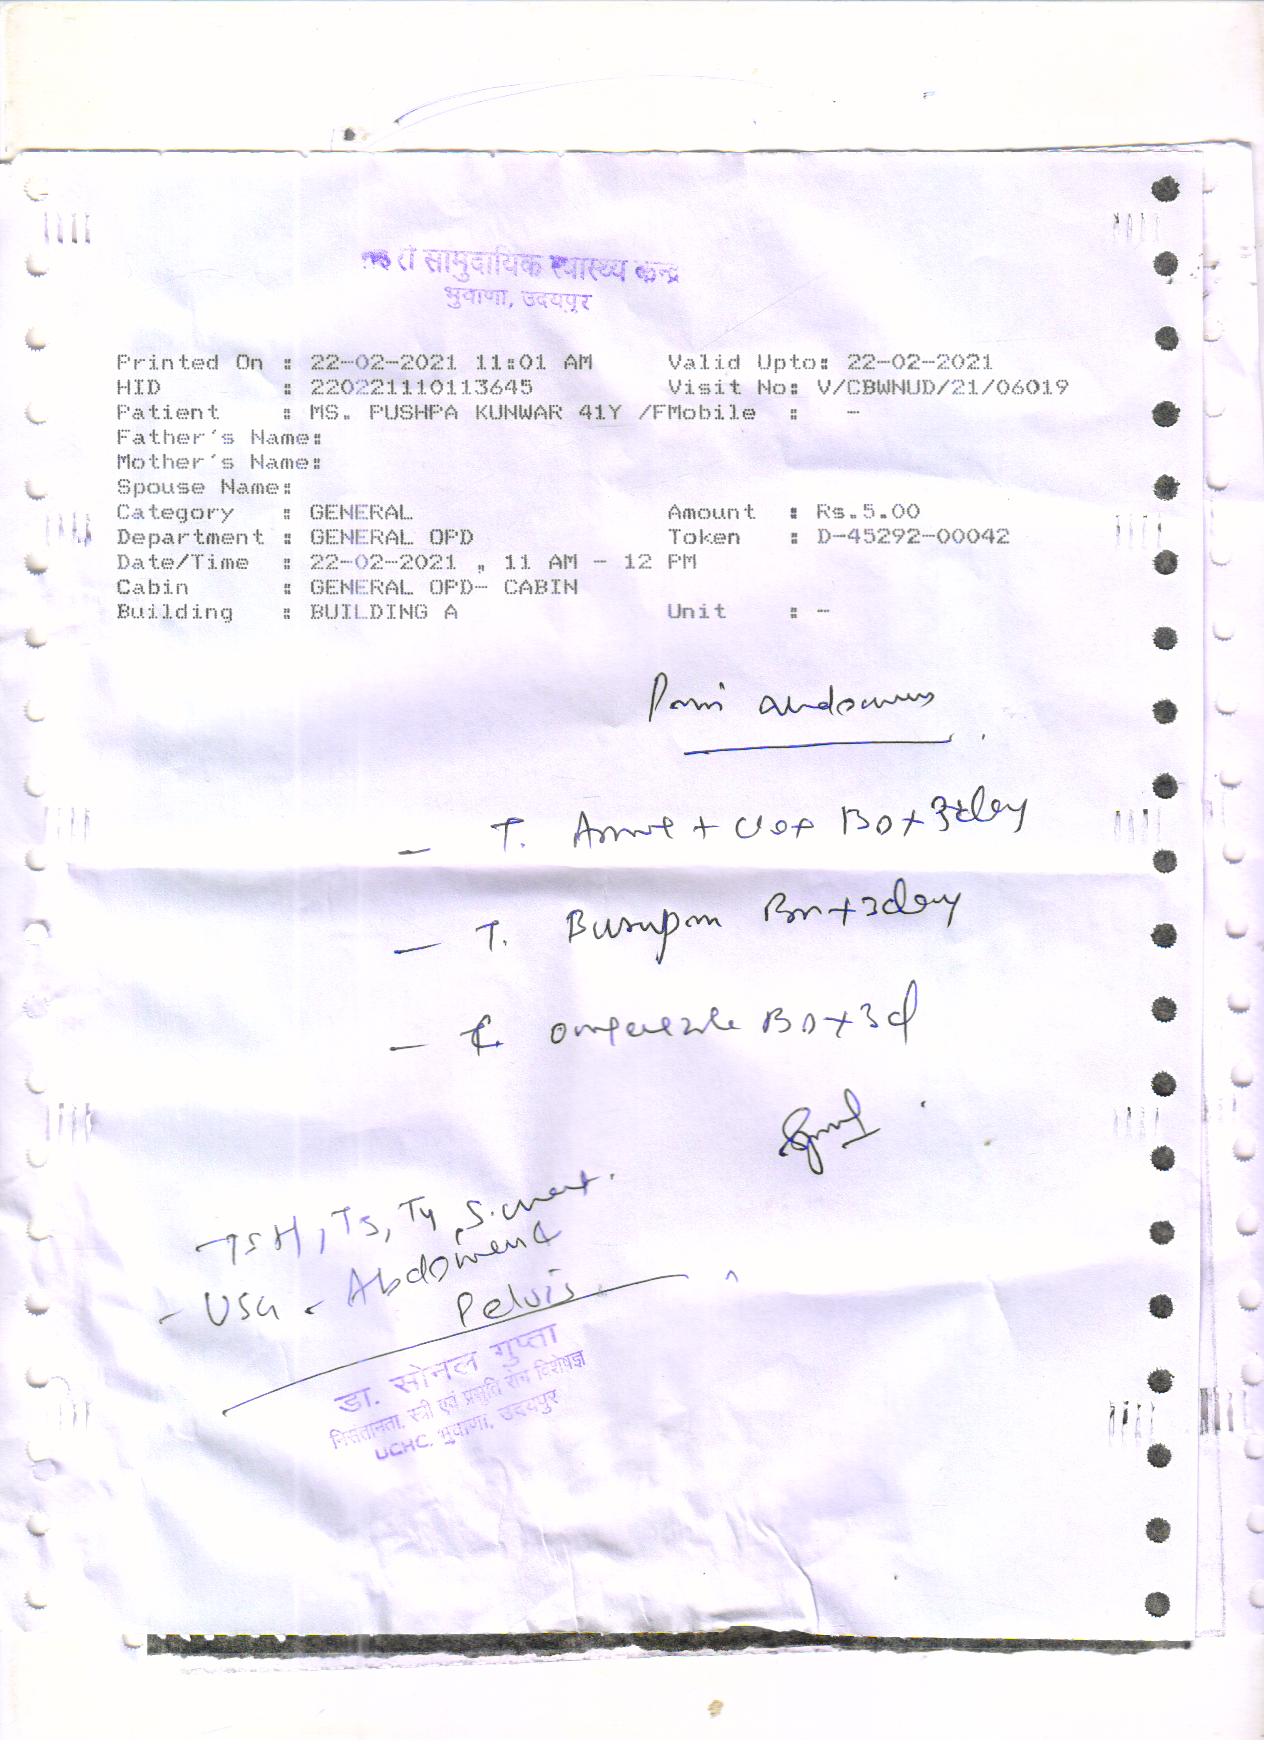 शहरी सामुदायिक स्वास्थ्य केन्द्र
भुवाणा, उदयपुर
Printed On : 22-02-2021 11:01 AM Valid Upto: 22-02-2021
HID : 220221110113645 Visit No: V/CBWNUD/21/06019
Patient : MS. PUSHPA KUNWAR 41Y /FMobile : -
Father's Name:
Mother's Name:
Spouse Name:
Category : GENERAL Amount : Rs.5.00
Department : GENERAL OPD Token : D-45292-00042
Date/Time : 22-02-2021 , 11 AM - 12 PM
Cabin : GENERAL OPD- CABIN
Building : BUILDING A Unit : -
Pain
- T. + BD x 3 day
- T. x 3 day
- BD x 3d
- TSH, T3, T4, S.
- USG - Abdomen &
Pelvis
डा. सोनल गुप्ता
निसंतानता, स्त्री एवं प्रसुति रोग विशेषज्ञ
UCHC. भुवाणा, उदयपुर